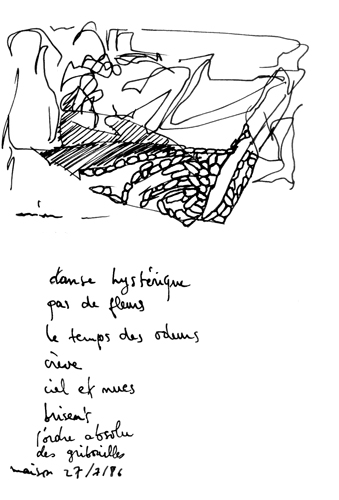 danse hystérique
pas de fleurs
le temps des odeurs
crève
ciel et nues
brisent
l'ordre absolu
des gribouilles
maison 27/7/96